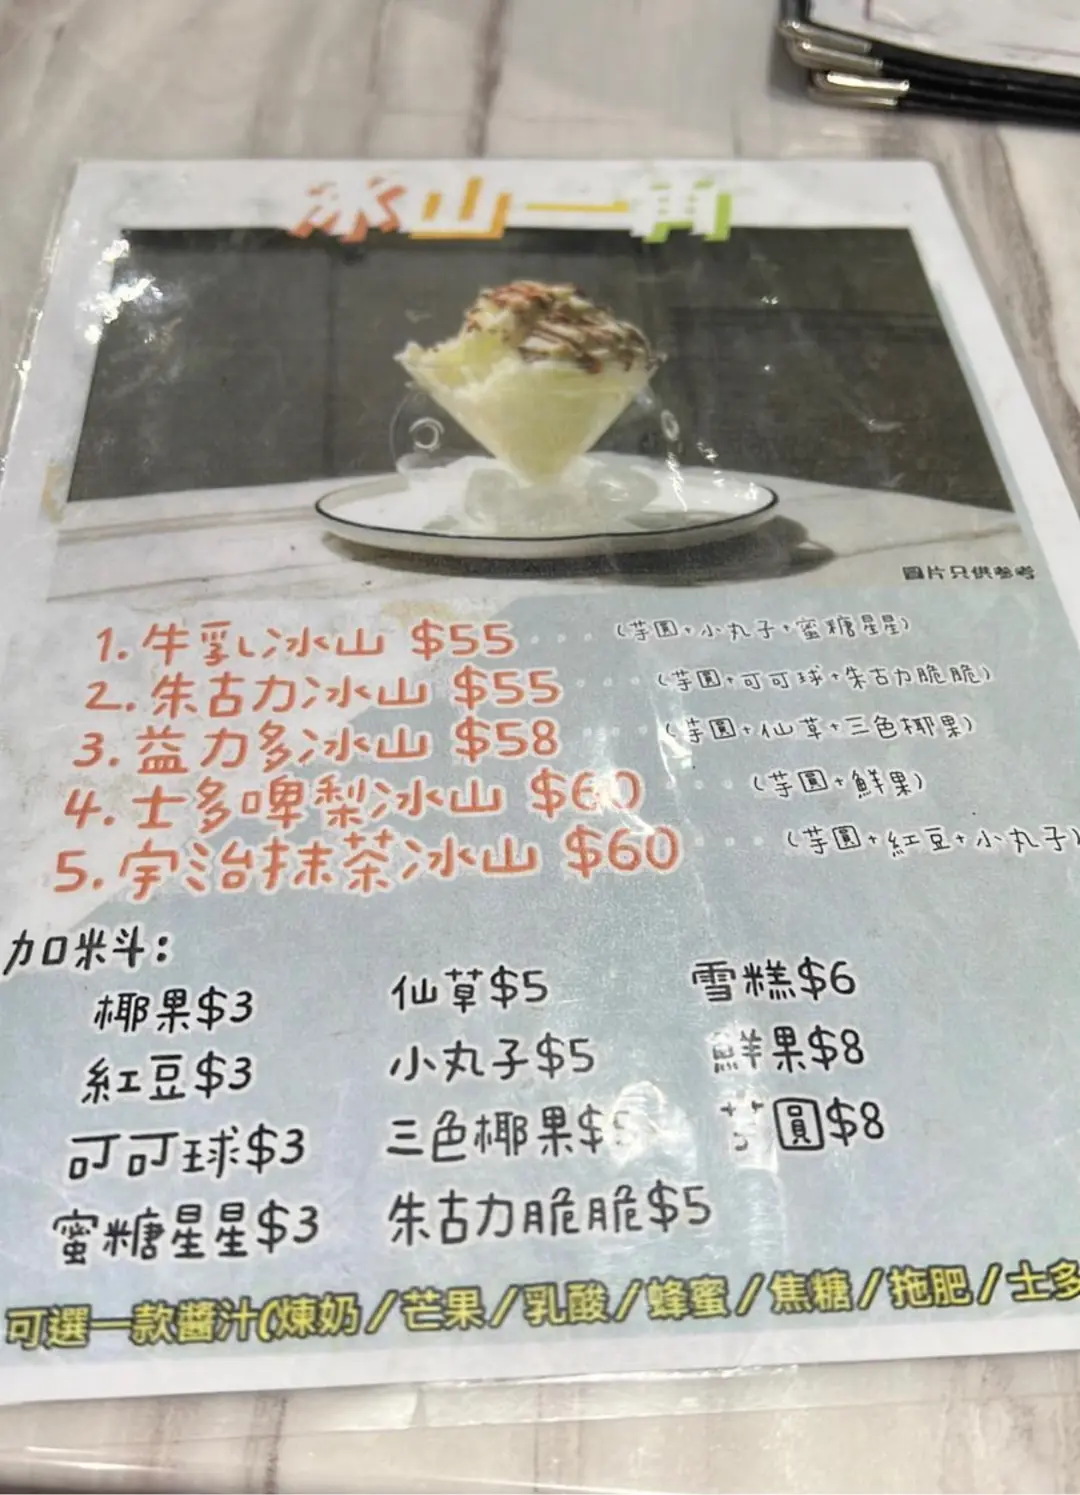 冰山一角
圖片只供參考
1. 牛乳冰山 $55 ···· (芋圓+小丸子+蜜糖星星)
2. 朱古力冰山 $55 ···· (芋圓+可可球+朱古力脆脆)
3. 益力多冰山 $58 ···· (芋圓+仙草+三色椰果)
4. 士多啤梨冰山 $60 ···· (芋圓+鮮果)
5. 宇治抹茶冰山 $60 ···· (芋圓+紅豆+小丸子)
加米斗:
椰果$3 仙草$5 雪糕$6
紅豆$3 小丸子$5 鮮果$8
可可球$3 三色椰果$5 芋圓$8
蜜糖星星$3 朱古力脆脆$5
可選一款醬汁(煉奶/芒果/乳酸/蜂蜜/焦糖/拖肥/士多